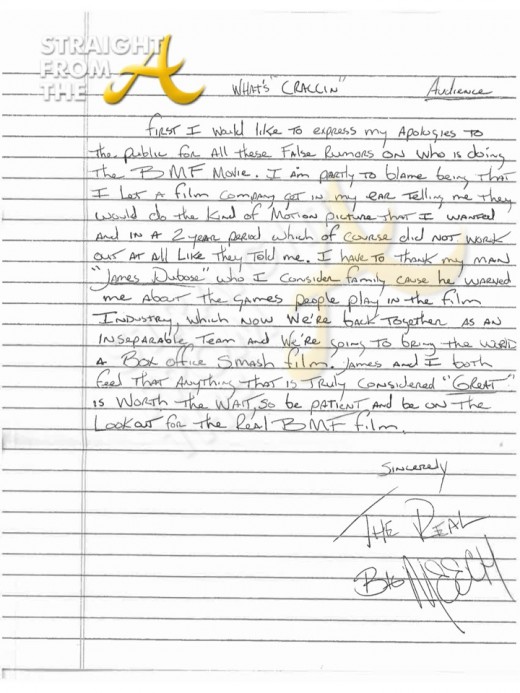 STRAIGHT
FROM
THE A
WHAT'S "CRACCIN" Audience
first I would like To express my Apologies To
the public for All these False Rumors on who is doing
The BMF Movie. I am partly to blame being That
I Let A film company got in my ear Telling me they
would do the Kind of Motion picture that I wanted
And in A 2 year period which of course did NOT work
out AT All Like They Told me. I have to Thank my man
"James Dubose" who I Consider family cause he warned
me About the games people play in the film
Industry, which now We're back Together As AN
INSAPARABLE Team and We're going To bring the world
A Box office Smash film. James and I both
feel That Anything That is Truly Considered "GREAT"
is WORTH The WAIT, So be PATIENT And be on The
Lookout for The Real BMF film.
Sincerely
THE REAL
BIG MEECH